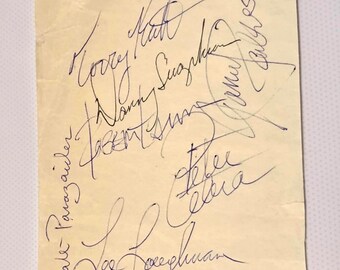 Terry Kath
Danny Seraphine
James Pankow
Robert Lamm
Peter
Cetera
Walt Parazaider
Lee Loughnane